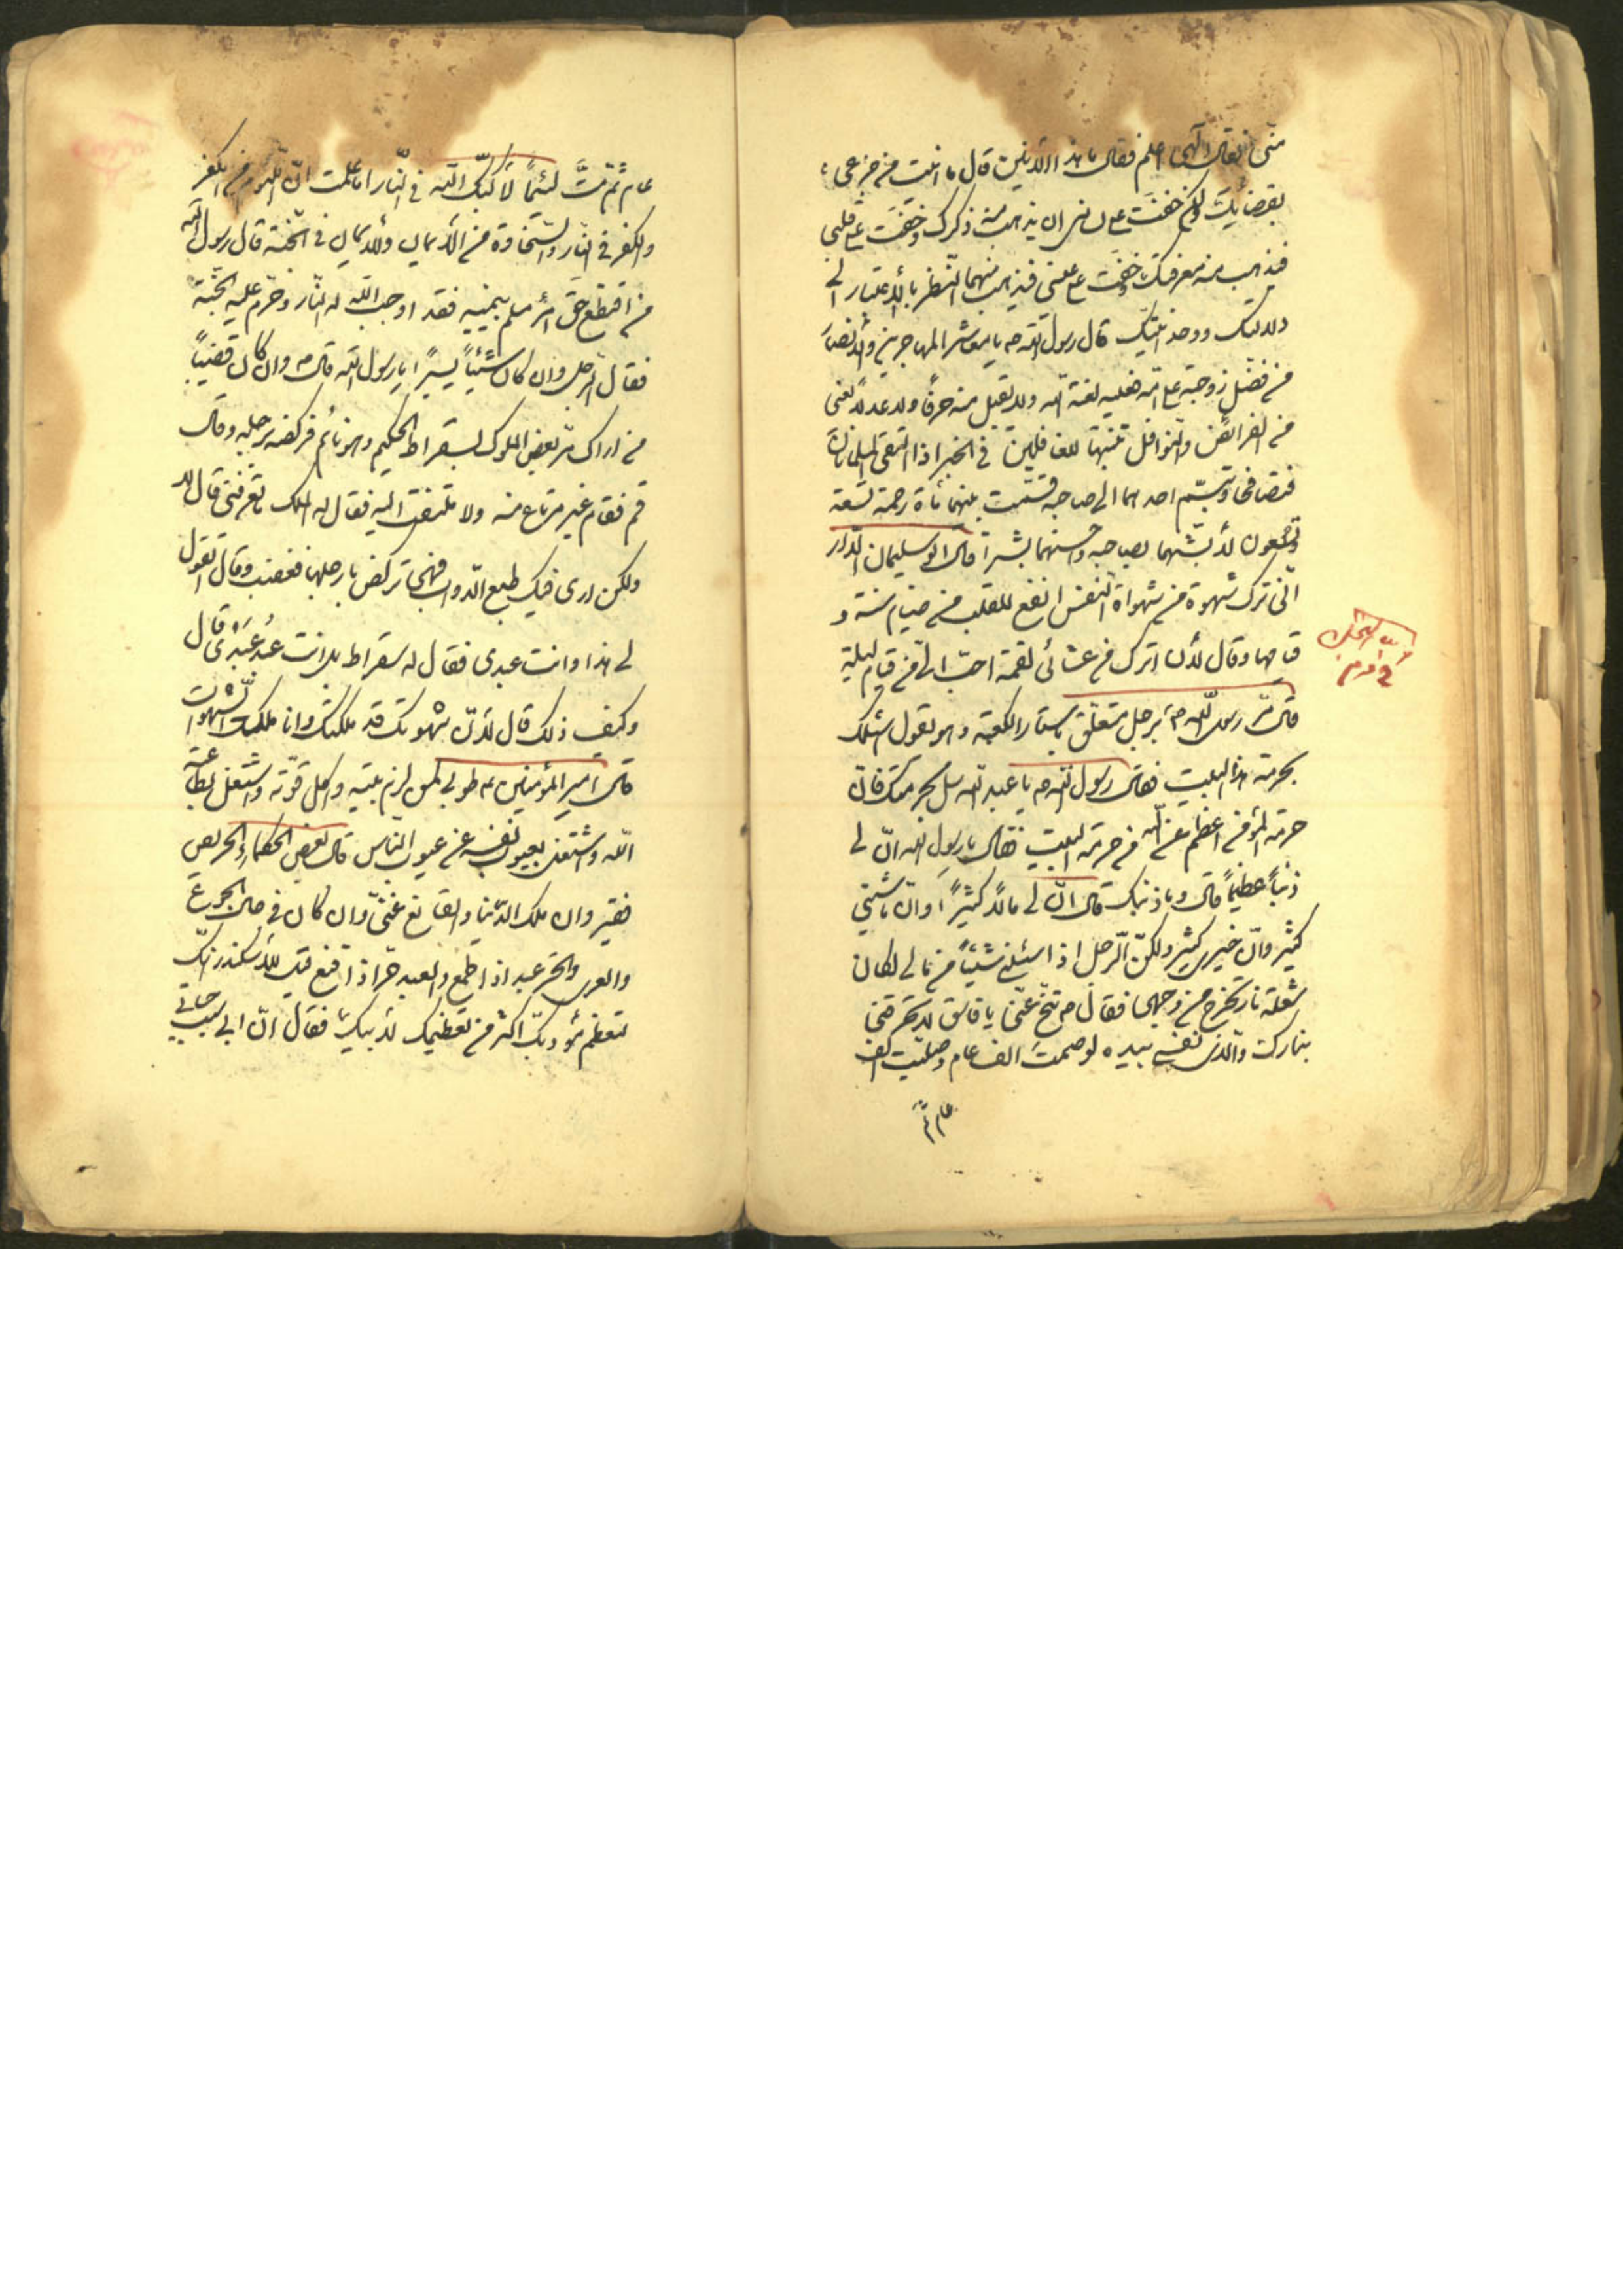 منى فقال الهى اعلم فقال ما هذا الانين قال ما انيت من جزعى
بقضائك ولكن خفت على لسانى ان يذهب منه ذكرك وخفت على قلبى
فيذهب منه معرفتك وخفت على عينى فيذهب منهما النظر بالاعتبار الى
دلالتك ووحدانيتك قال رسول الله ص يا معاشر المهاجرين والانصار
من فضل زوجته على امه فعليه لعنة الله ولا تقبل منه صرفا ولا عدلا يعنى
من الفرائض والنوافل تنبيها للغافلين فى الخبر اذا التقى المسلمان
فتصافحا وتبسم احدهما الى صاحبه قسمت بينهما مأة رحمة تسعة
وتسعون لأبشهما بصاحبه واحسنهما بشرا قال ابو سليمان الدار
انى ترك شهوة من شهواة النفس انفع للقلب من صيام سنة و
قيامها وقال لأن اترك من عشائى لقمة احب الى من قيام ليلة
قال مر رسول الله ص برجل متعلق باستار الكعبة وهو يقول اسئلك
بحرمة هذا البيت فقال رسول الله ص يا عبد الله سل بحرمتك فان
حرمة المؤمن اعظم عند الله من حرمة البيت فقال يا رسول الله ان لى
ذنبا عظيما قال وما ذنبك قال ان لى مالا كثيرا وان ماشيتى
كثير وان خيرى كثير ولكن الرجل اذا سئلنى شيئا من مالى لكان
شعلة نار تخرج من وجهى فقال ص تنح عنى يا فاسق لا تحرقنى
بنارك والذى نفسى بيده لو صمت الف عام وصليت الف
عام ثم
عام ثم مت لئيما لأكبك الله فى النار اما علمت ان اللؤم من الكفر
والكفر فى النار والسخاوة من الأيمان والأيمان فى الجنة قال رسول الله
من اقتطع حق امرء مسلم بيمينه فقد اوجب الله له النار وحرم عليه الجنة
فقال الرجل وان كان شيئا يسيرا يا رسول الله قال ص وان كان قضيبا
من اراك مر بعض الملوك بسقراط الحكيم وهو نائم فركضه برجله وقال
قم فقام غير مرتاع منه ولا ملتفت اليه فقال له الملك ما تعرفنى قال لا
ولكن ارى فيك طبع الدواب فهى تركض بارجلها فغضب وقال اتقول
لى هذا وانت عبدى فقال له سقراط بل انت عبد عبدى قال
وكيف ذلك قال لأن شهوتك قد ملكتك وانا ملكت الشهوات
قال امير المؤمنين ع طوبى لمن لزم بيته واكل قوته واشتغل بطاعة
الله واشتغل بعيوب نفسه عن عيوب الناس قال بعض الحكماء الحريص
فقير وان ملك الدنيا والقانع غنى وان كان فى حال الجوع
والعرى والحر عبد اذا طمع والعبد حر اذا قنع قيل للأسكندر انك
لتعظم مؤدبك اكثر من تعظيمك لأبيك فقال ان ابى سبب حياتى